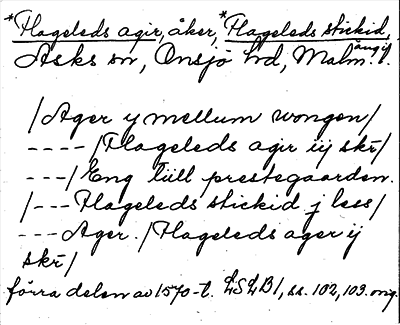 *Hageleds agir, åker, *Hageleds stickid, äng i
Asks sn, Onsjö hd, Malm. l.
/Ager y mellum wongen/
----/Hageleds agir iij skr/
---/Eng tiill prestegaarden.
/---Hageleds stickid j less/
---Ager./Hageleds ager ij
skr/
förra delen av 1570-t. LSLB1, ss. 102, 103. orig.